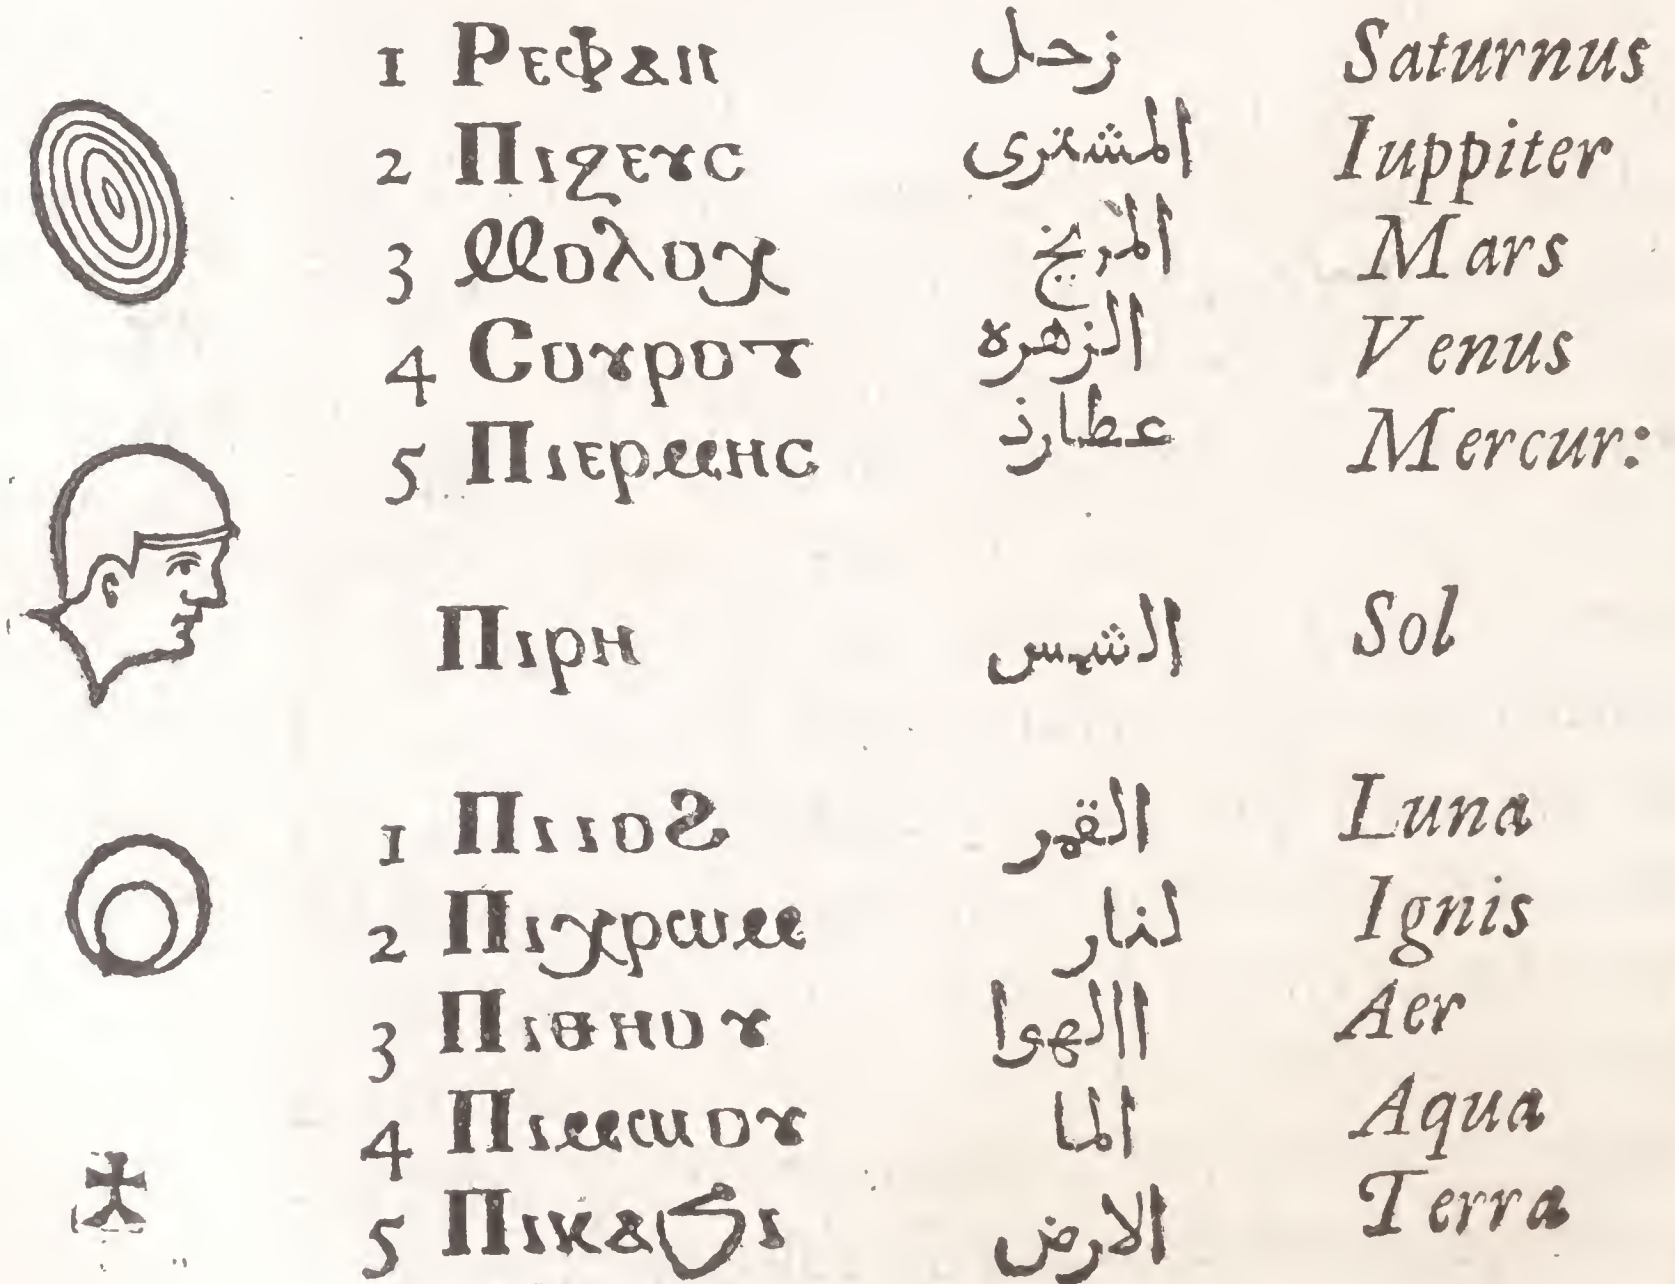 1 Ⲣⲉⲫⲁⲛ زحل Saturnus
2 Ⲡⲓⲍⲉⲩⲥ المشترى Iuppiter
3 Ⲙⲟⲗⲟⲭ المريخ Mars
4 Ⲥⲟⲩⲣⲟⲧ الزهره Venus
5 Ⲡⲓⲉⲣⲙⲏⲥ عطارذ Mercur:
Ⲡⲓⲣⲏ الشمس Sol
1 Ⲡⲓⲓⲟϩ القمر Luna
2 Ⲡⲓⲭⲣⲱⲙ لنار Ignis
3 Ⲡⲓⲑⲏⲟⲩ االهوا Aer
4 Ⲡⲓⲙⲱⲟⲩ الما Aqua
5 Ⲡⲓⲕⲁϩⲓ الارض Terra